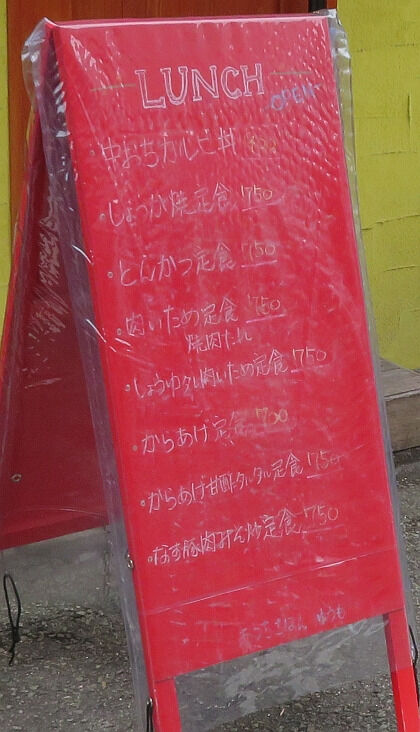 LUNCH
OPEN
・牛おちカルビ丼
・しょうが焼定食 750
・とんかつ定食 750
・肉いため定食 750
焼肉たれ
・しょうゆタレ肉いため定食 750
・からあげ定食 700
・からあげ甘酢タルタル定食 750
・なす豚肉みそ炒定食 750